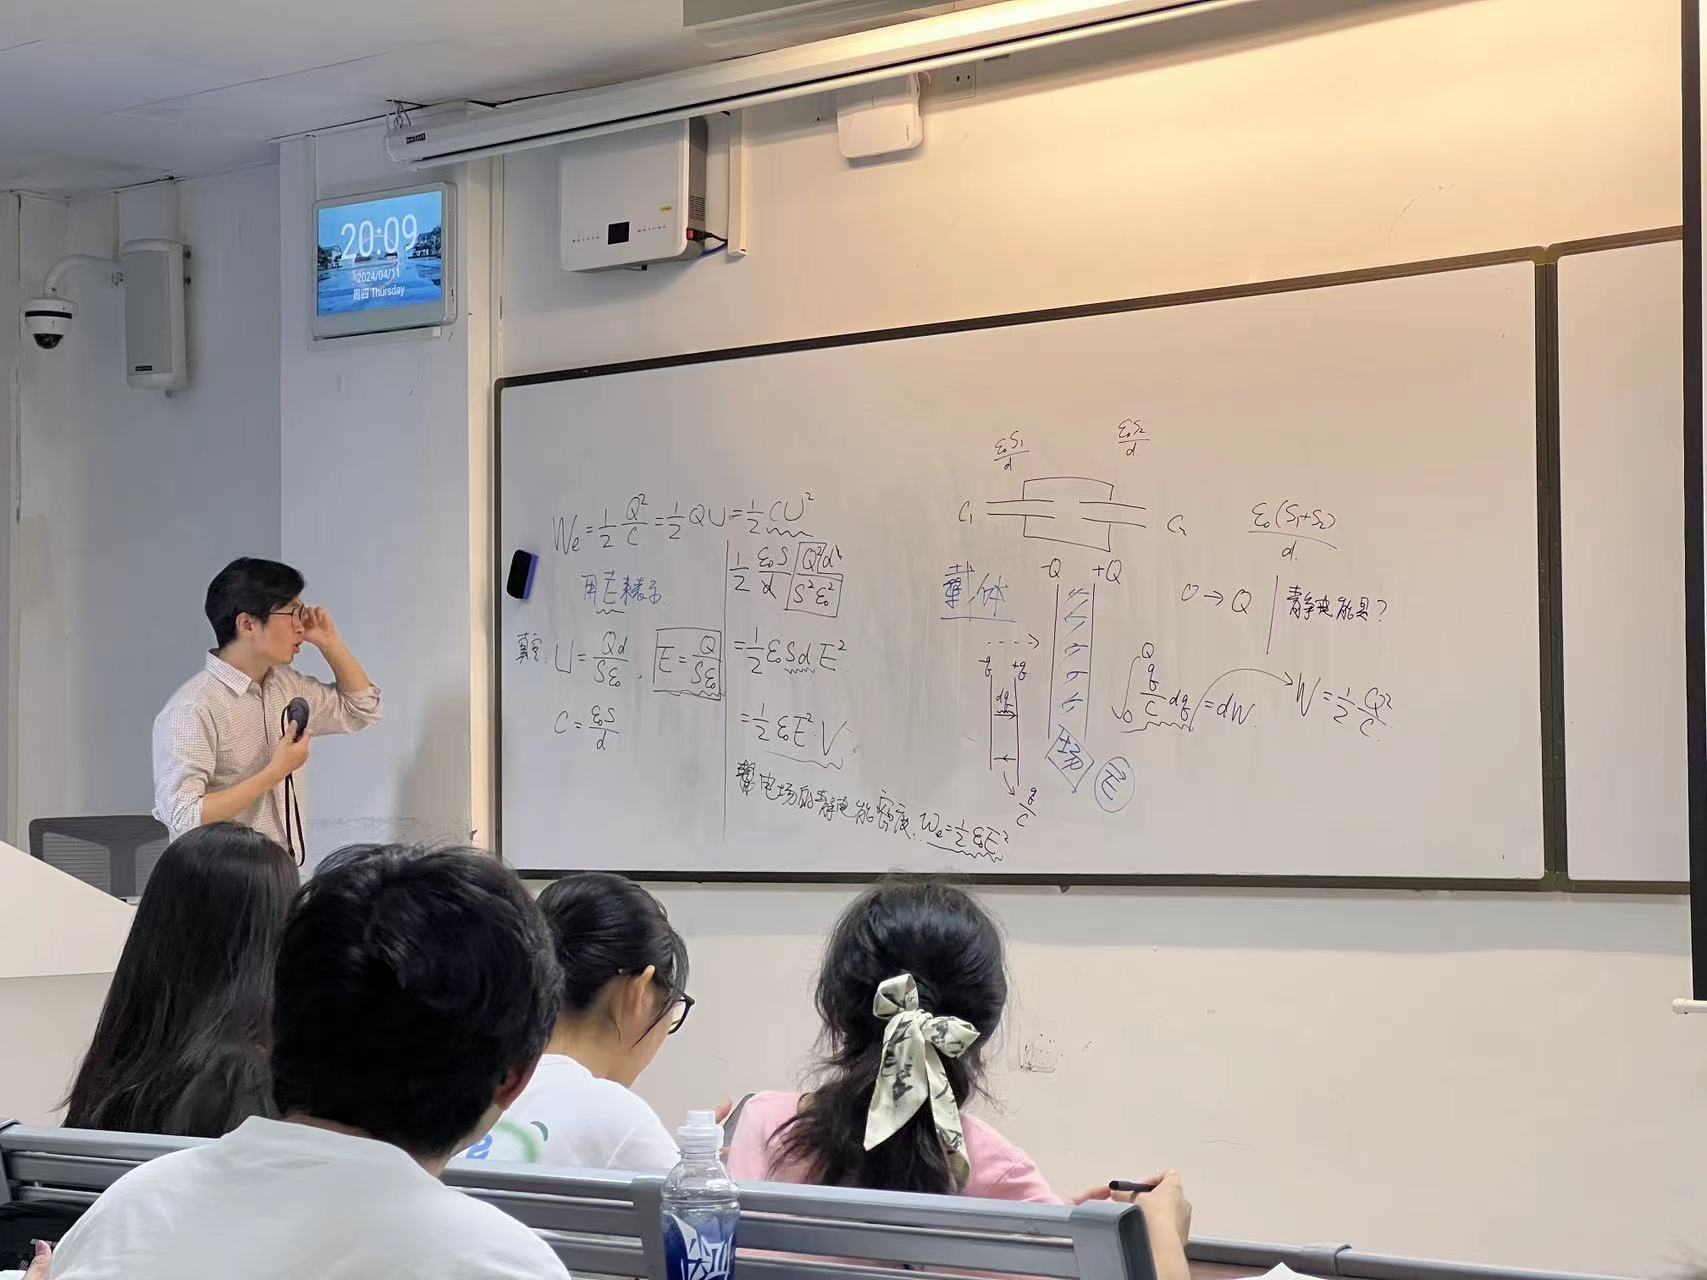 20:09
2024/04/11
周四 Thursday
We = 1/2 Q²/C = 1/2 QU = 1/2 CU²
用E来表示
真空: U = Qd/Sε₀, E = Q/Sε₀
C = ε₀S/d
1/2 ε₀S/d Q²d²/S²ε₀²
= 1/2 ε₀SdE²
= 1/2 ε₀E²·V
电场的静电能密度. We = 1/2 ε₀E²
ε₀S₁/d
ε₀S₂/d
C₁
C₂
ε₀(S₁+S₂)/d
载体
-Q +Q
0→Q
静电能具?
-q +q
dq
q/C
场
E
∫₀^Q q/C dq = dW
W = 1/2 Q²/C